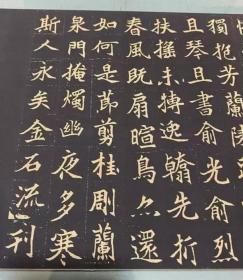 獨抱芳蘭
且琴且書俞光俞烈
扶搖未摶逸翰先折
春風既扇暄鳥亦還
如何是節剪桂蘭
泉門掩燭幽夜多寒
斯人永矣金石流刊